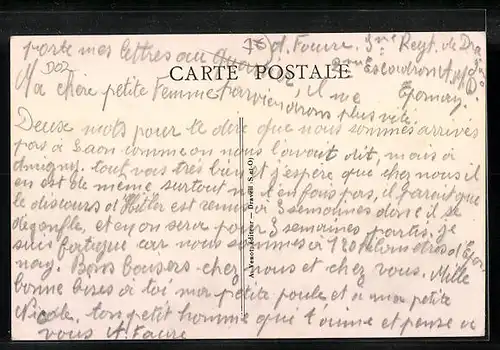 porte mes lettres au
d. Faure. 3me Regt. de
Escadron
CARTE POSTALE
Ma chère petite Femme
parviendrons plus vite. Epernay.
Deux mots pour te dire que nous sommes arrivés
pas à Laon comme on nous l'avait dit, mais à
tout va très bien et j'espère que chez nous il
en est de même, surtout ne t'en fais pas, il parait que
le discours d'Hitler est remis à 3 semaines donc il se
dégonfle, et on sera pour 3 semaines partis. je
suis fatigué car nous sommes à 120 kilomètres d'Eper
nay. Bons baisers chez nous et chez vous. Mille
bonne bises à toi ma petite poule et a ma petite
Nicole. ton petit homme qui t'aime et pense a
vous A. Faure